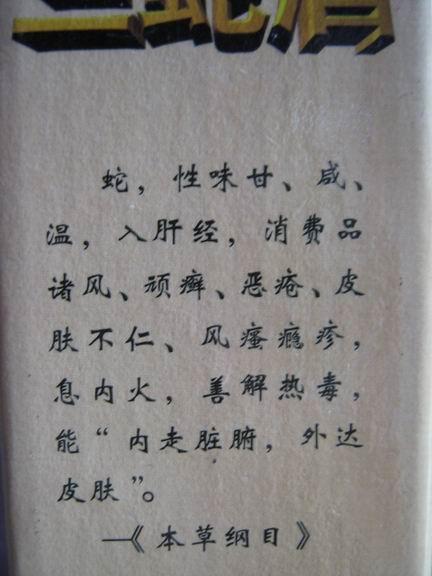 蛇，性味甘、咸、
温，入肝经，消费品
诸风、顽癣、恶疮、皮
肤不仁、风瘙瘾疹，
息内火，善解热毒，
能“内走脏腑，外达
皮肤”。
—《本草纲目》